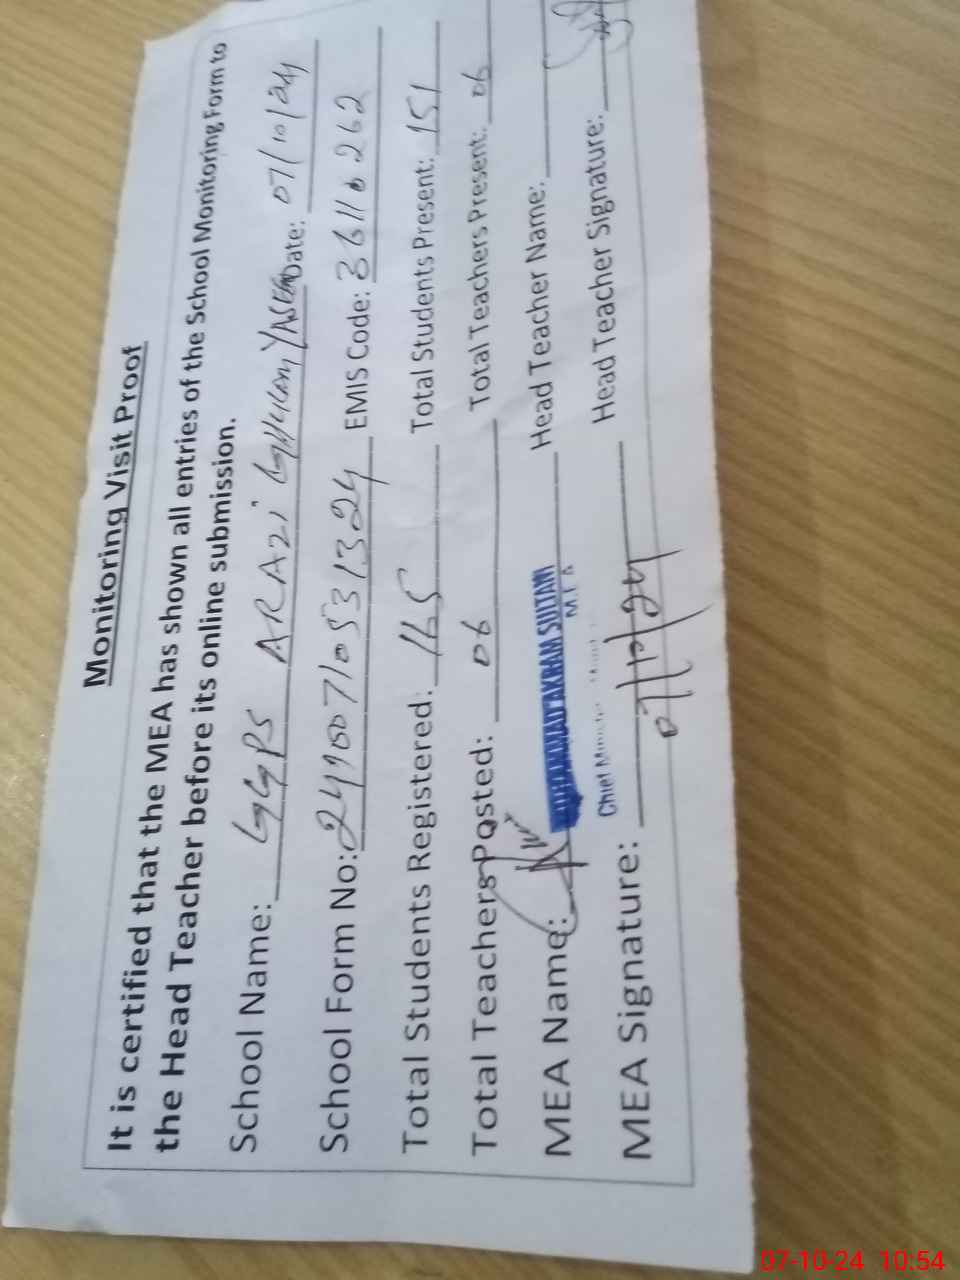 Monitoring Visit Proof
It is certified that the MEA has shown all entries of the School Monitoring Form to
the Head Teacher before its online submission.
School Name: GGPS ARAZi GHULAM YASEEN Date: 07/10/24
School Form No: 24100710531324 EMIS Code: 36110262
Total Students Registered: 165 Total Students Present: 151
Total Teachers Posted: 06 Total Teachers Present: 06
MEA Name: MUHAMMAD AKRAM SULTANI Head Teacher Name:
M.E.A
Chief Minister
MEA Signature: 07/10/24 Head Teacher Signature:
07-10-24 10:54